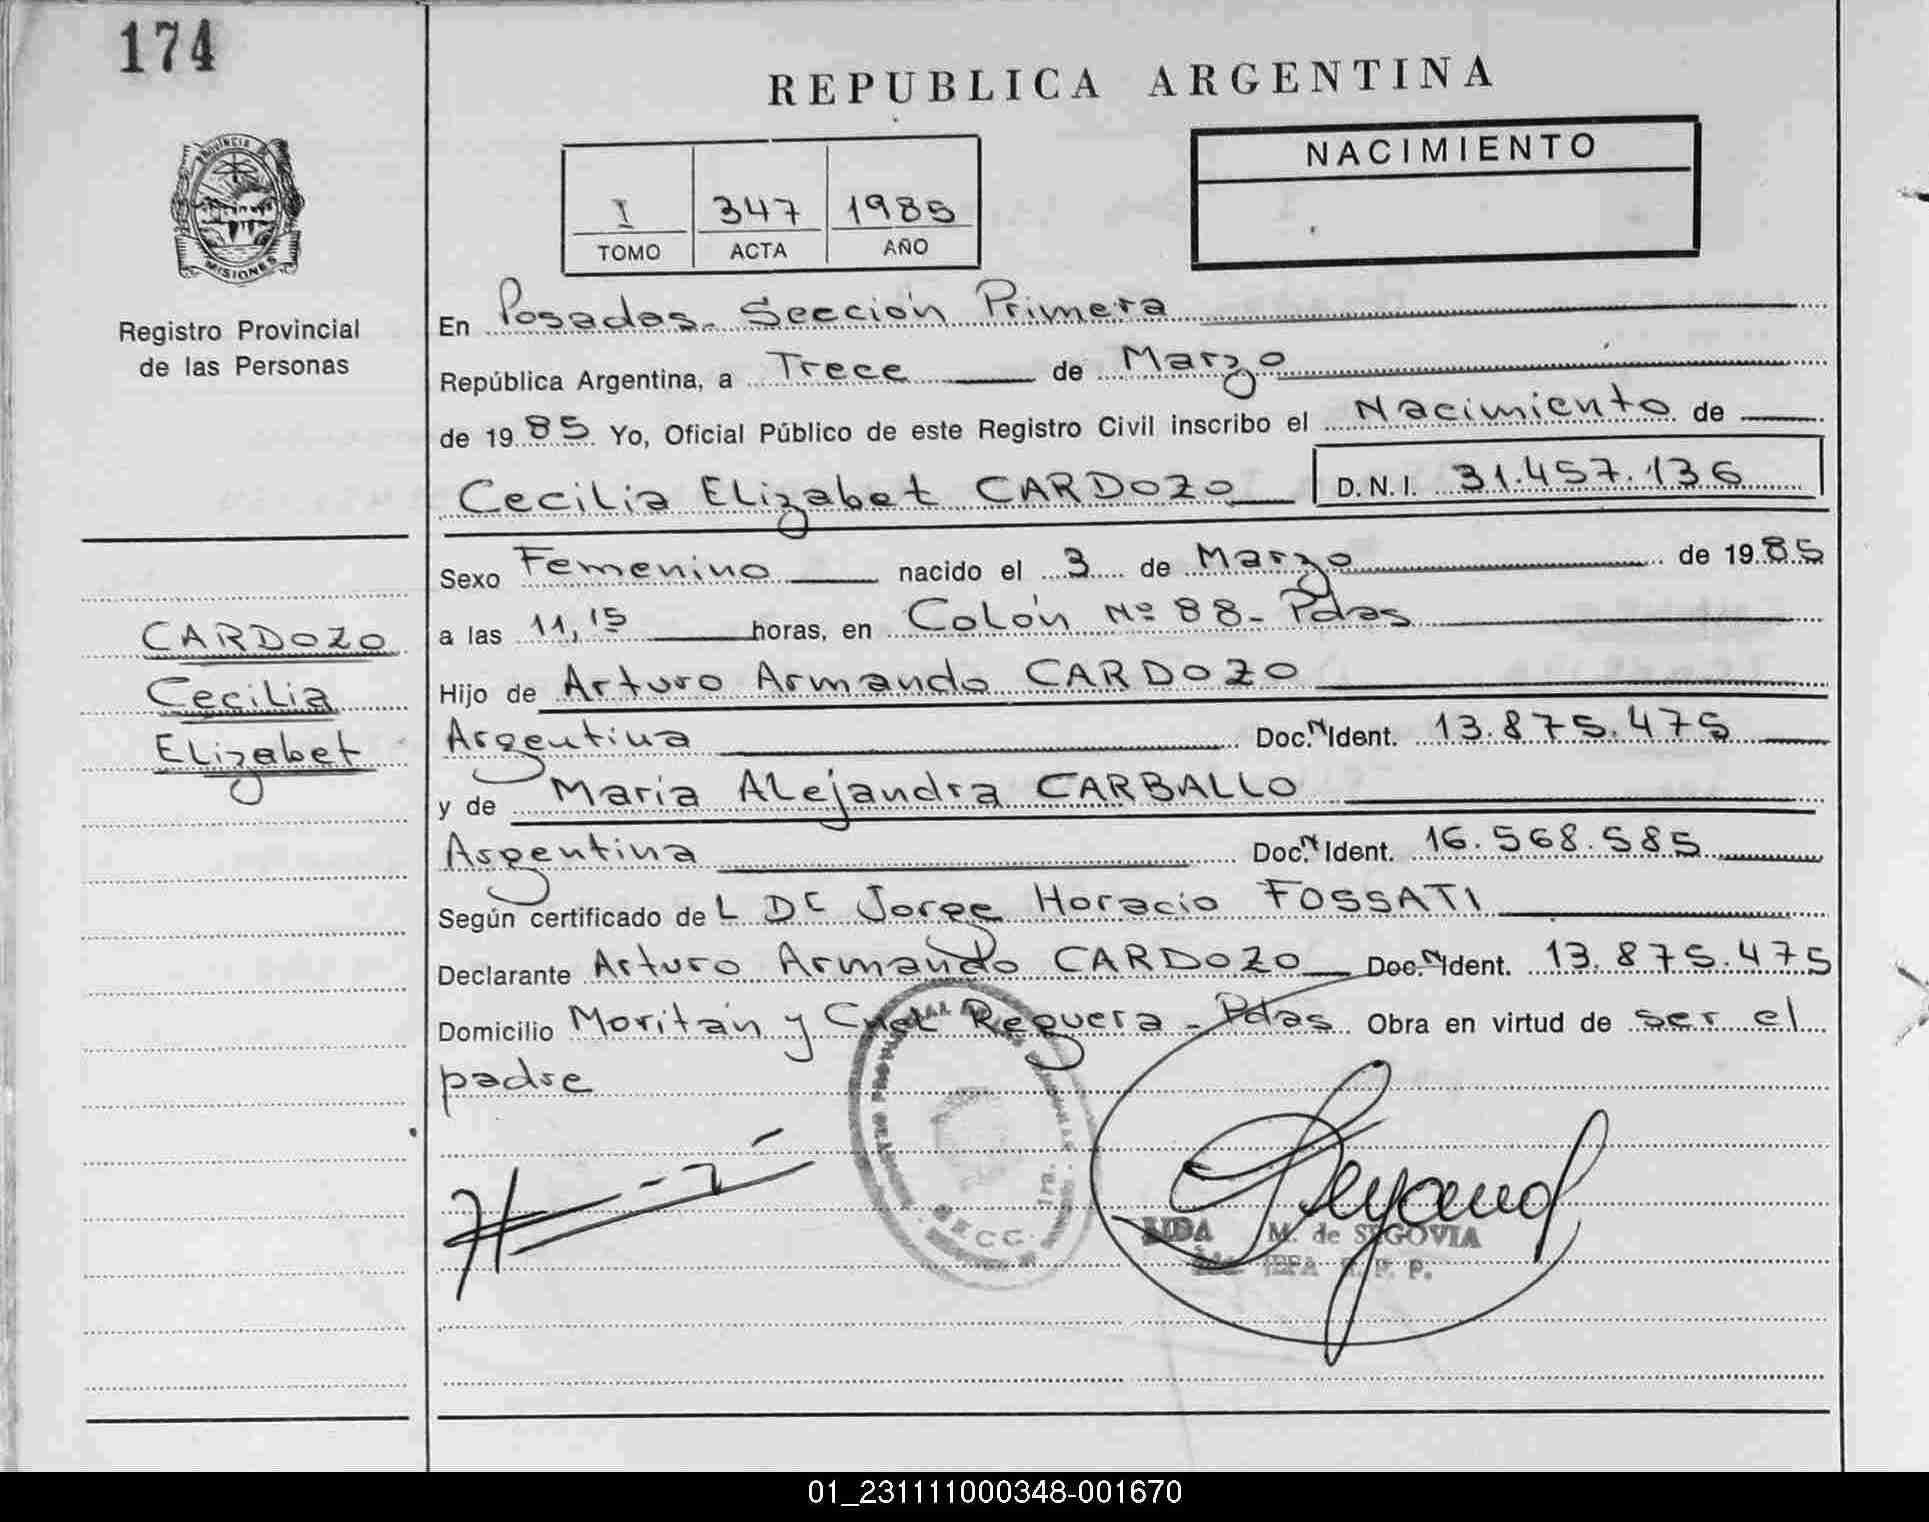 174
REPUBLICA ARGENTINA
NACIMIENTO
I 347 1985
TOMO ACTA AÑO
PROVINCIA DE
MISIONES
Registro Provincial
de las Personas
En Posadas. Sección Primera
República Argentina, a Trece de Marzo
de 1985 Yo, Oficial Público de este Registro Civil inscribo el Nacimiento de
Cecilia Elizabet CARDOZO D.N.I. 31.457.136
Sexo Femenino nacido el 3 de Marzo de 1985
a las 11,15 horas, en Colón Nº 88- Pdas
Hijo de Arturo Armando CARDOZO
Argentina Doc. N Ident. 13.875.475
y de María Alejandra CARBALLO
Argentina Doc. N Ident. 16.568.585
Según certificado de L Dc Jorge Horacio FOSSATI
Declarante Arturo Armando CARDOZO Doc. N Ident. 13.875.475
Domicilio Moritán y Cnel Reguera - Pdas Obra en virtud de ser el
padre
CARDOZO
Cecilia
Elizabet
SECC. 1ra.
LIDA M. de SEGOVIA
JEFA
01_231111000348-001670